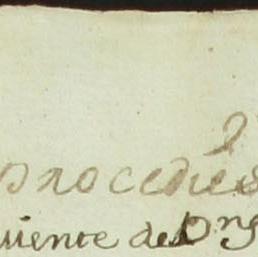 procedies
uiente del Dng